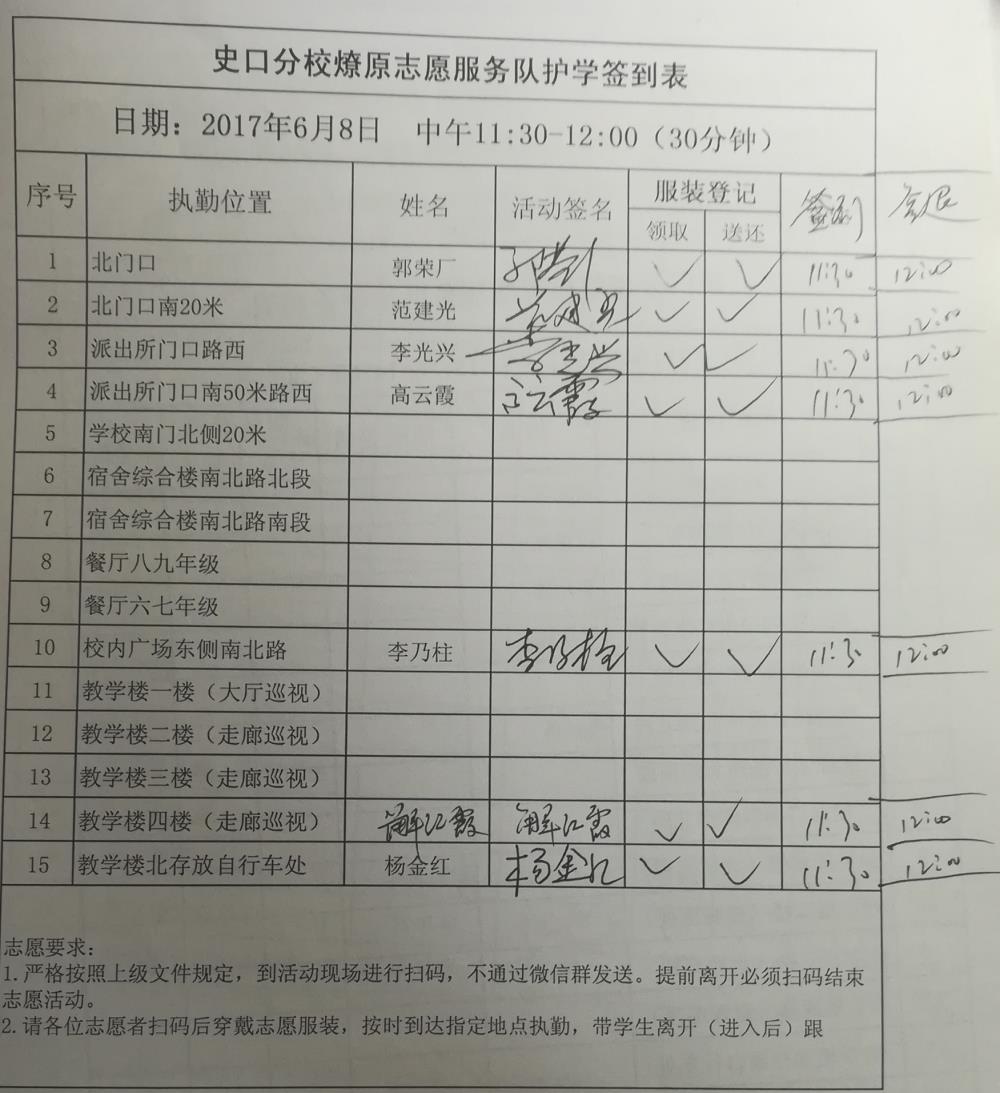 史口分校燎原志愿服务队护学签到表
日期：2017年6月8日 中午11:30-12:00（30分钟）
序号 执勤位置 姓名 活动签名 服装登记 签到 签退
领取 送还
1 北门口 郭荣厂 郭荣厂 ✓ ✓ 11:30 12:00
2 北门口南20米 范建光 范建光 ✓ ✓ 11:30 12:00
3 派出所门口路西 李光兴 李光兴 ✓ ✓ 11:30 12:00
4 派出所门口南50米路西 高云霞 高云霞 ✓ ✓ 11:30 12:00
5 学校南门北侧20米
6 宿舍综合楼南北路北段
7 宿舍综合楼南北路南段
8 餐厅八九年级
9 餐厅六七年级
10 校内广场东侧南北路 李乃柱 李乃柱 ✓ ✓ 11:30 12:00
11 教学楼一楼（大厅巡视）
12 教学楼二楼（走廊巡视）
13 教学楼三楼（走廊巡视）
14 教学楼四楼（走廊巡视） 解红霞 解红霞 ✓ ✓ 11:30 12:00
15 教学楼北存放自行车处 杨金红 杨金红 ✓ ✓ 11:30 12:00
志愿要求：
1.严格按照上级文件规定，到活动现场进行扫码，不通过微信群发送。提前离开必须扫码结束
志愿活动。
2.请各位志愿者扫码后穿戴志愿服装，按时到达指定地点执勤，带学生离开（进入后）跟